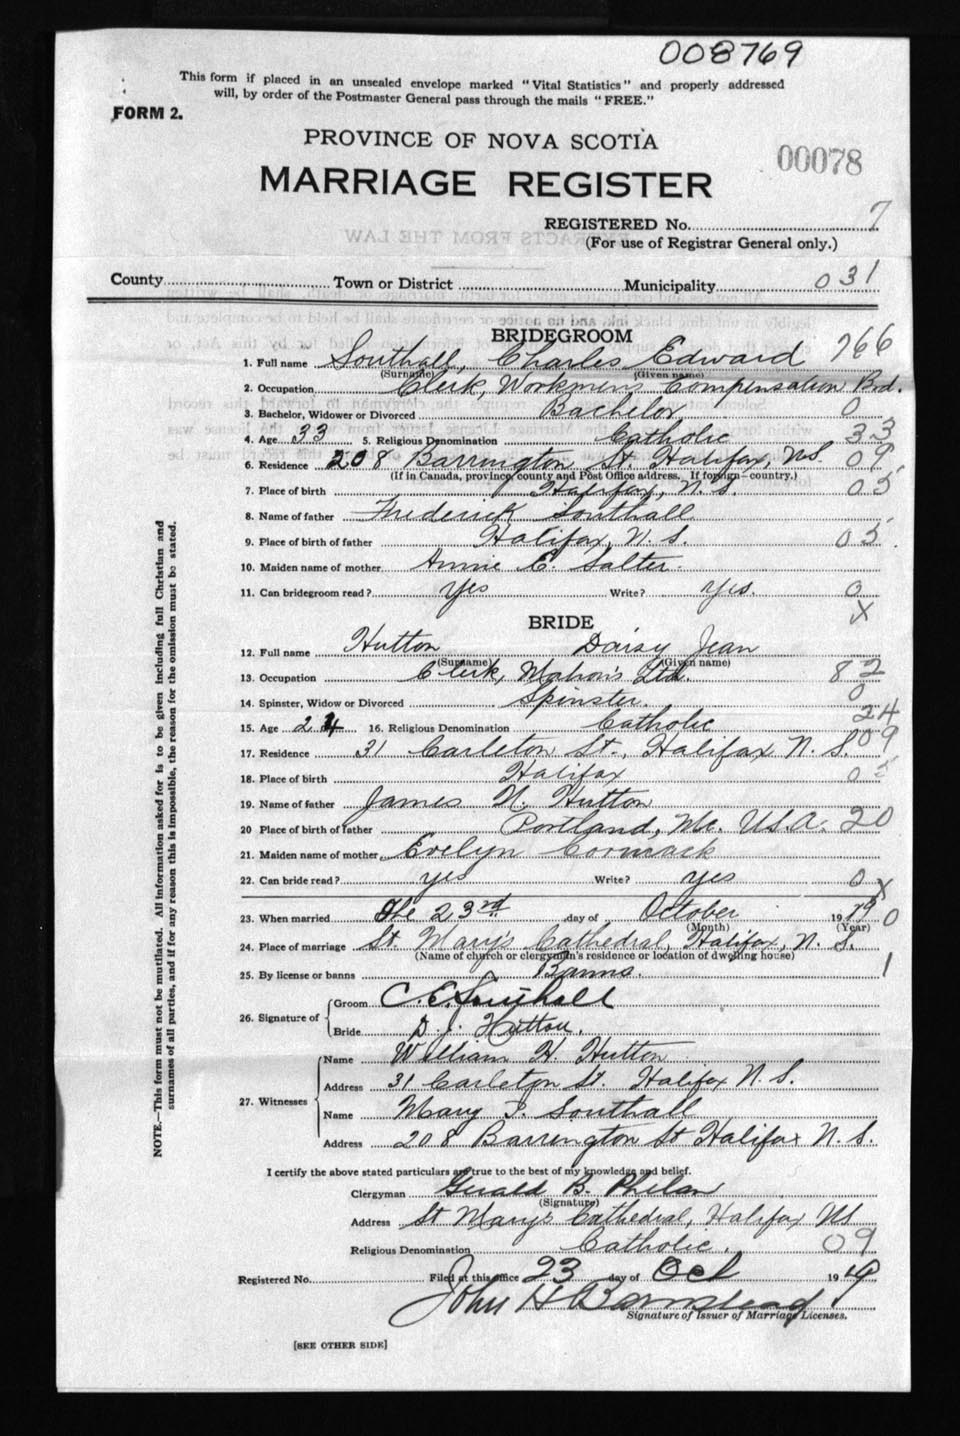 008769
This form if placed in an unsealed envelope marked "Vital Statistics" and properly addressed
will, by order of the Postmaster General pass through the mails "FREE."
FORM 2.
PROVINCE OF NOVA SCOTIA
00078
MARRIAGE REGISTER
REGISTERED No. 7
(For use of Registrar General only.)
County Town or District Municipality 031
BRIDEGROOM
1. Full name Southall, Charles Edward 766
(Surname) (Given name)
2. Occupation Clerk, Workmen's Compensation Brd.
3. Bachelor, Widower or Divorced Bachelor 0
4. Age 33 5. Religious Denomination Catholic 33
6. Residence 208 Barrington St. Halifax, NS 09
(If in Canada, province, county and Post Office address. If foreign—country.)
7. Place of birth Halifax, N.S. 05
8. Name of father Frederick Southall
9. Place of birth of father Halifax, N.S. 05
10. Maiden name of mother Annie E. Salter.
11. Can bridegroom read? Yes Write? Yes. 0
X
BRIDE
12. Full name Hutton Daisy Jean
(Surname) (Given name)
13. Occupation Clerk, Mahon's Ltd. 82
14. Spinster, Widow or Divorced Spinster. 0
15. Age 24 16. Religious Denomination Catholic 24
17. Residence 31 Carleton St., Halifax N. S. 09
18. Place of birth Halifax 05
19. Name of father James N. Hutton
20 Place of birth of father Portland, Me. U.S.A. 20
21. Maiden name of mother Evelyn Cormack
22. Can bride read? yes Write? yes 0
X
23. When married the 23rd day of October 1919 0
(Month) (Year)
24. Place of marriage St. Mary's Cathedral, Halifax, N. S.
(Name of church or clergyman's residence or location of dwelling house)
25. By license or banns Banns. 1
26. Signature of Groom C. E. Southall
Bride D. J. Hutton.
27. Witnesses Name William H. Hutton
Address 31 Carleton St. Halifax N. S.
Name Mary P. Southall
Address 208 Barrington St Halifax N. S.
I certify the above stated particulars are true to the best of my knowledge and belief.
Clergyman Gerald B. Phelan
(Signature)
Address St Mary's Cathedral, Halifax NS
Religious Denomination Catholic. 09
Registered No. Filed at this office 23 day of Oct 1919
John H Barnstead
Signature of Issuer of Marriage Licenses.
[SEE OTHER SIDE]
NOTE.—This form must not be mutilated. All information asked for is to be given including full Christian and
surnames of all parties, and if for any reason this is impossible, the reason for the omission must be stated.